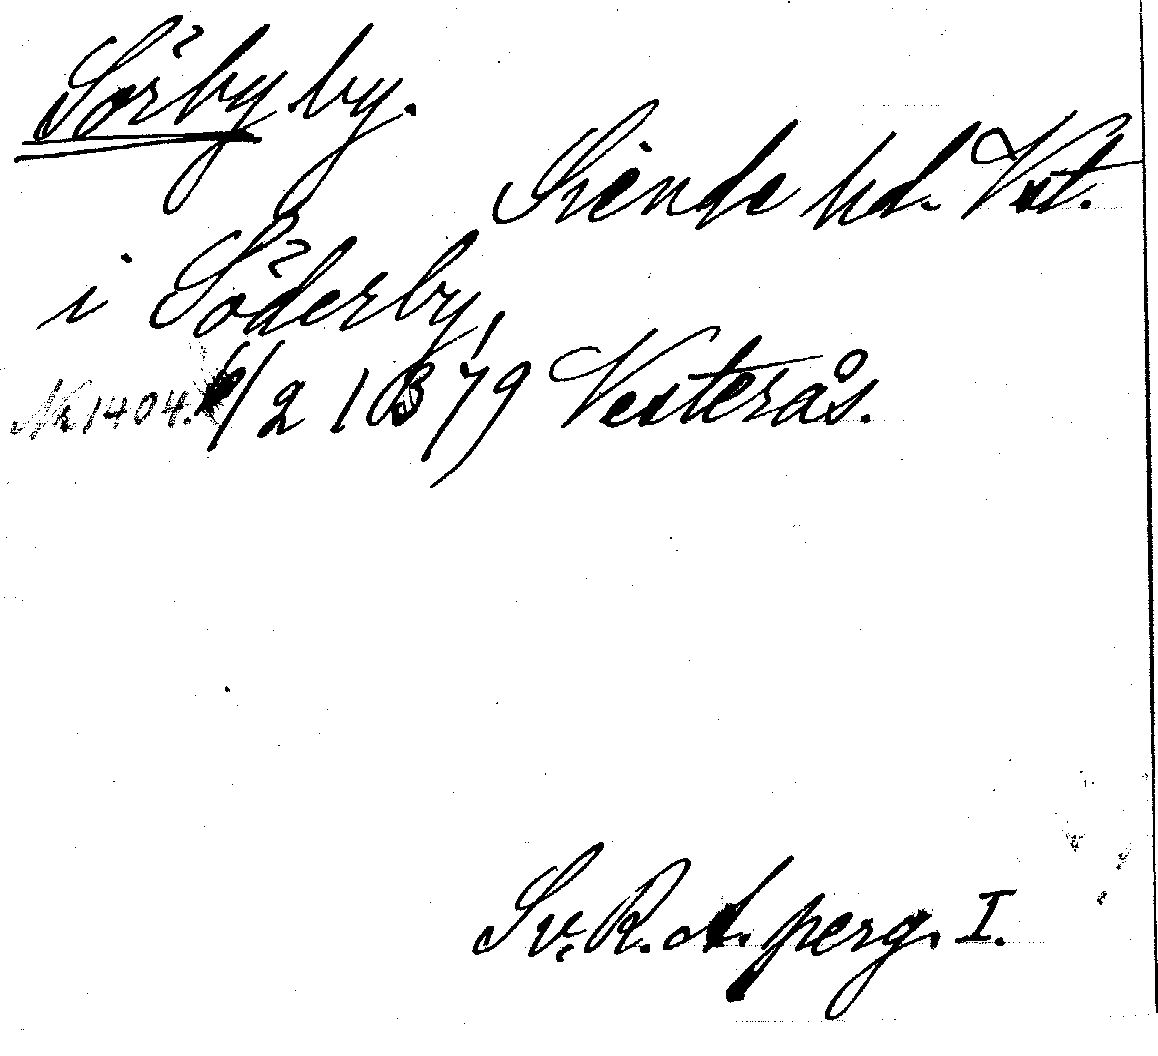 Sörby by.
Siende hd. Vst.
i Söderby,
Nr 1404. 6/2 1379 Vesterås.
Sv. R. A. perg. I.